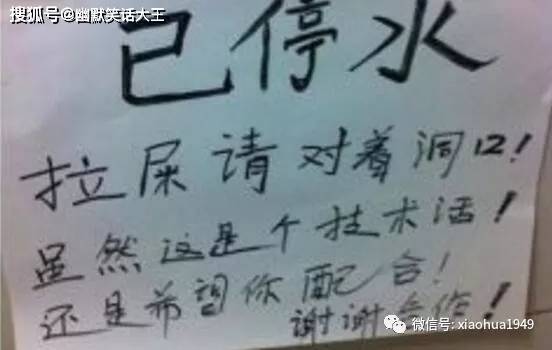 搜狐号@幽默笑话大王
已停水
拉屎请对着洞口!
虽然这是个技术活!
还是希望你配合!
谢谢合作!
微信号: xiaohua1949